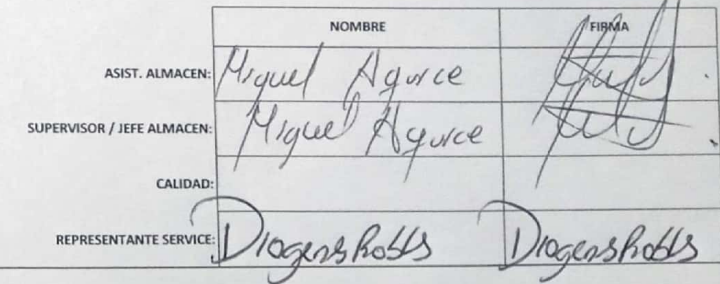 NOMBRE FIRMA
ASIST. ALMACEN: Miguel Agurce
SUPERVISOR / JEFE ALMACEN: Miguel Agurce
CALIDAD:
REPRESENTANTE SERVICE: Diogens Robls Diogens Robls